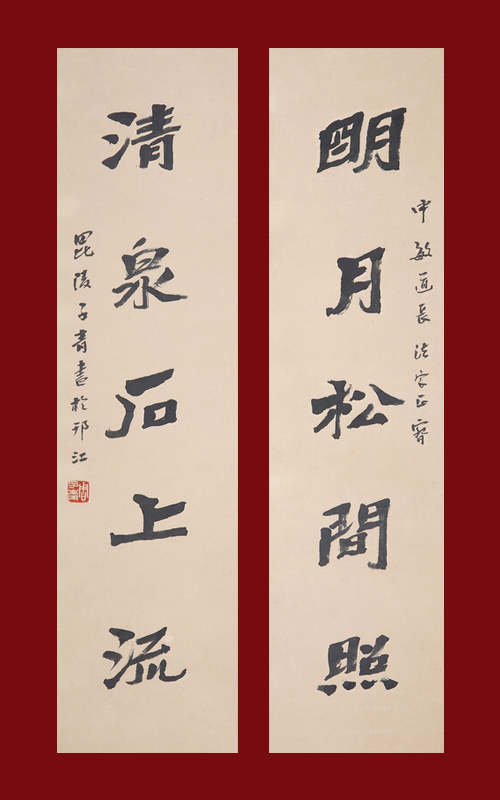 明月松間照
申敏道長法家正賓
清泉石上流
毘陵子青書於邗江